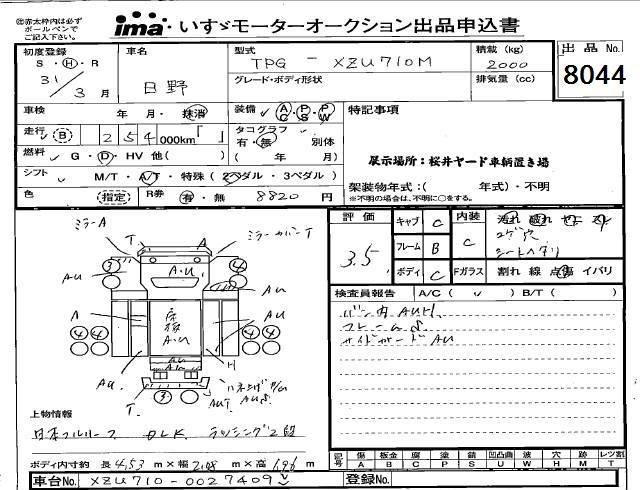 ㊟赤太枠内は必ず
ボールペンで
ご記入下さい。
ima いすゞモーターオークション出品申込書
出品 No.
8044
初度登録
S・H・R
31/3月
車名
日野
型式
TPG - XZU710M
積載 (kg)
2000
グレード・ボディ形状
排気量 (cc)
車検 年 月・抹消
装備 AC PS PW
特記事項
走行 B 254000km「 」
タコグラフ
有・無 別体
( 年 月)
燃料 G・D・HV 他( )
展示場所：桜井ヤード車輌置き場
シフト M/T・A/T・特殊 (2ペダル・3ペダル)
架装物年式：( 年式)・不明
※不明の場合は、不明に○をする。
色 (指定) R券 有・無 8820円
評価 3.5
キャブ C
フレーム B
ボディ C
内装 C
汚れ 破れ
コゲ穴
シートヘタリ
Fガラス 割れ 線 点傷 イバリ
検査員報告 A/C ( ) B/T ( )
バン内 AUH
フレームS
サイドガード AU
ミラーA
T
A
ミラーカバーT
3
4
AU
A.U
床板
A.U
H
上物情報
日本フルハーフ DLK ラッシング2段
ボディ内寸約 長 4.53 m×幅 2.08 m×高 1.96 m
記号
傷 板金 腐 塗 錆 凹凸曲 波 穴 跡 レツ割
A B C P S U W H M T
車台No. XZU710-0027409
登録No.